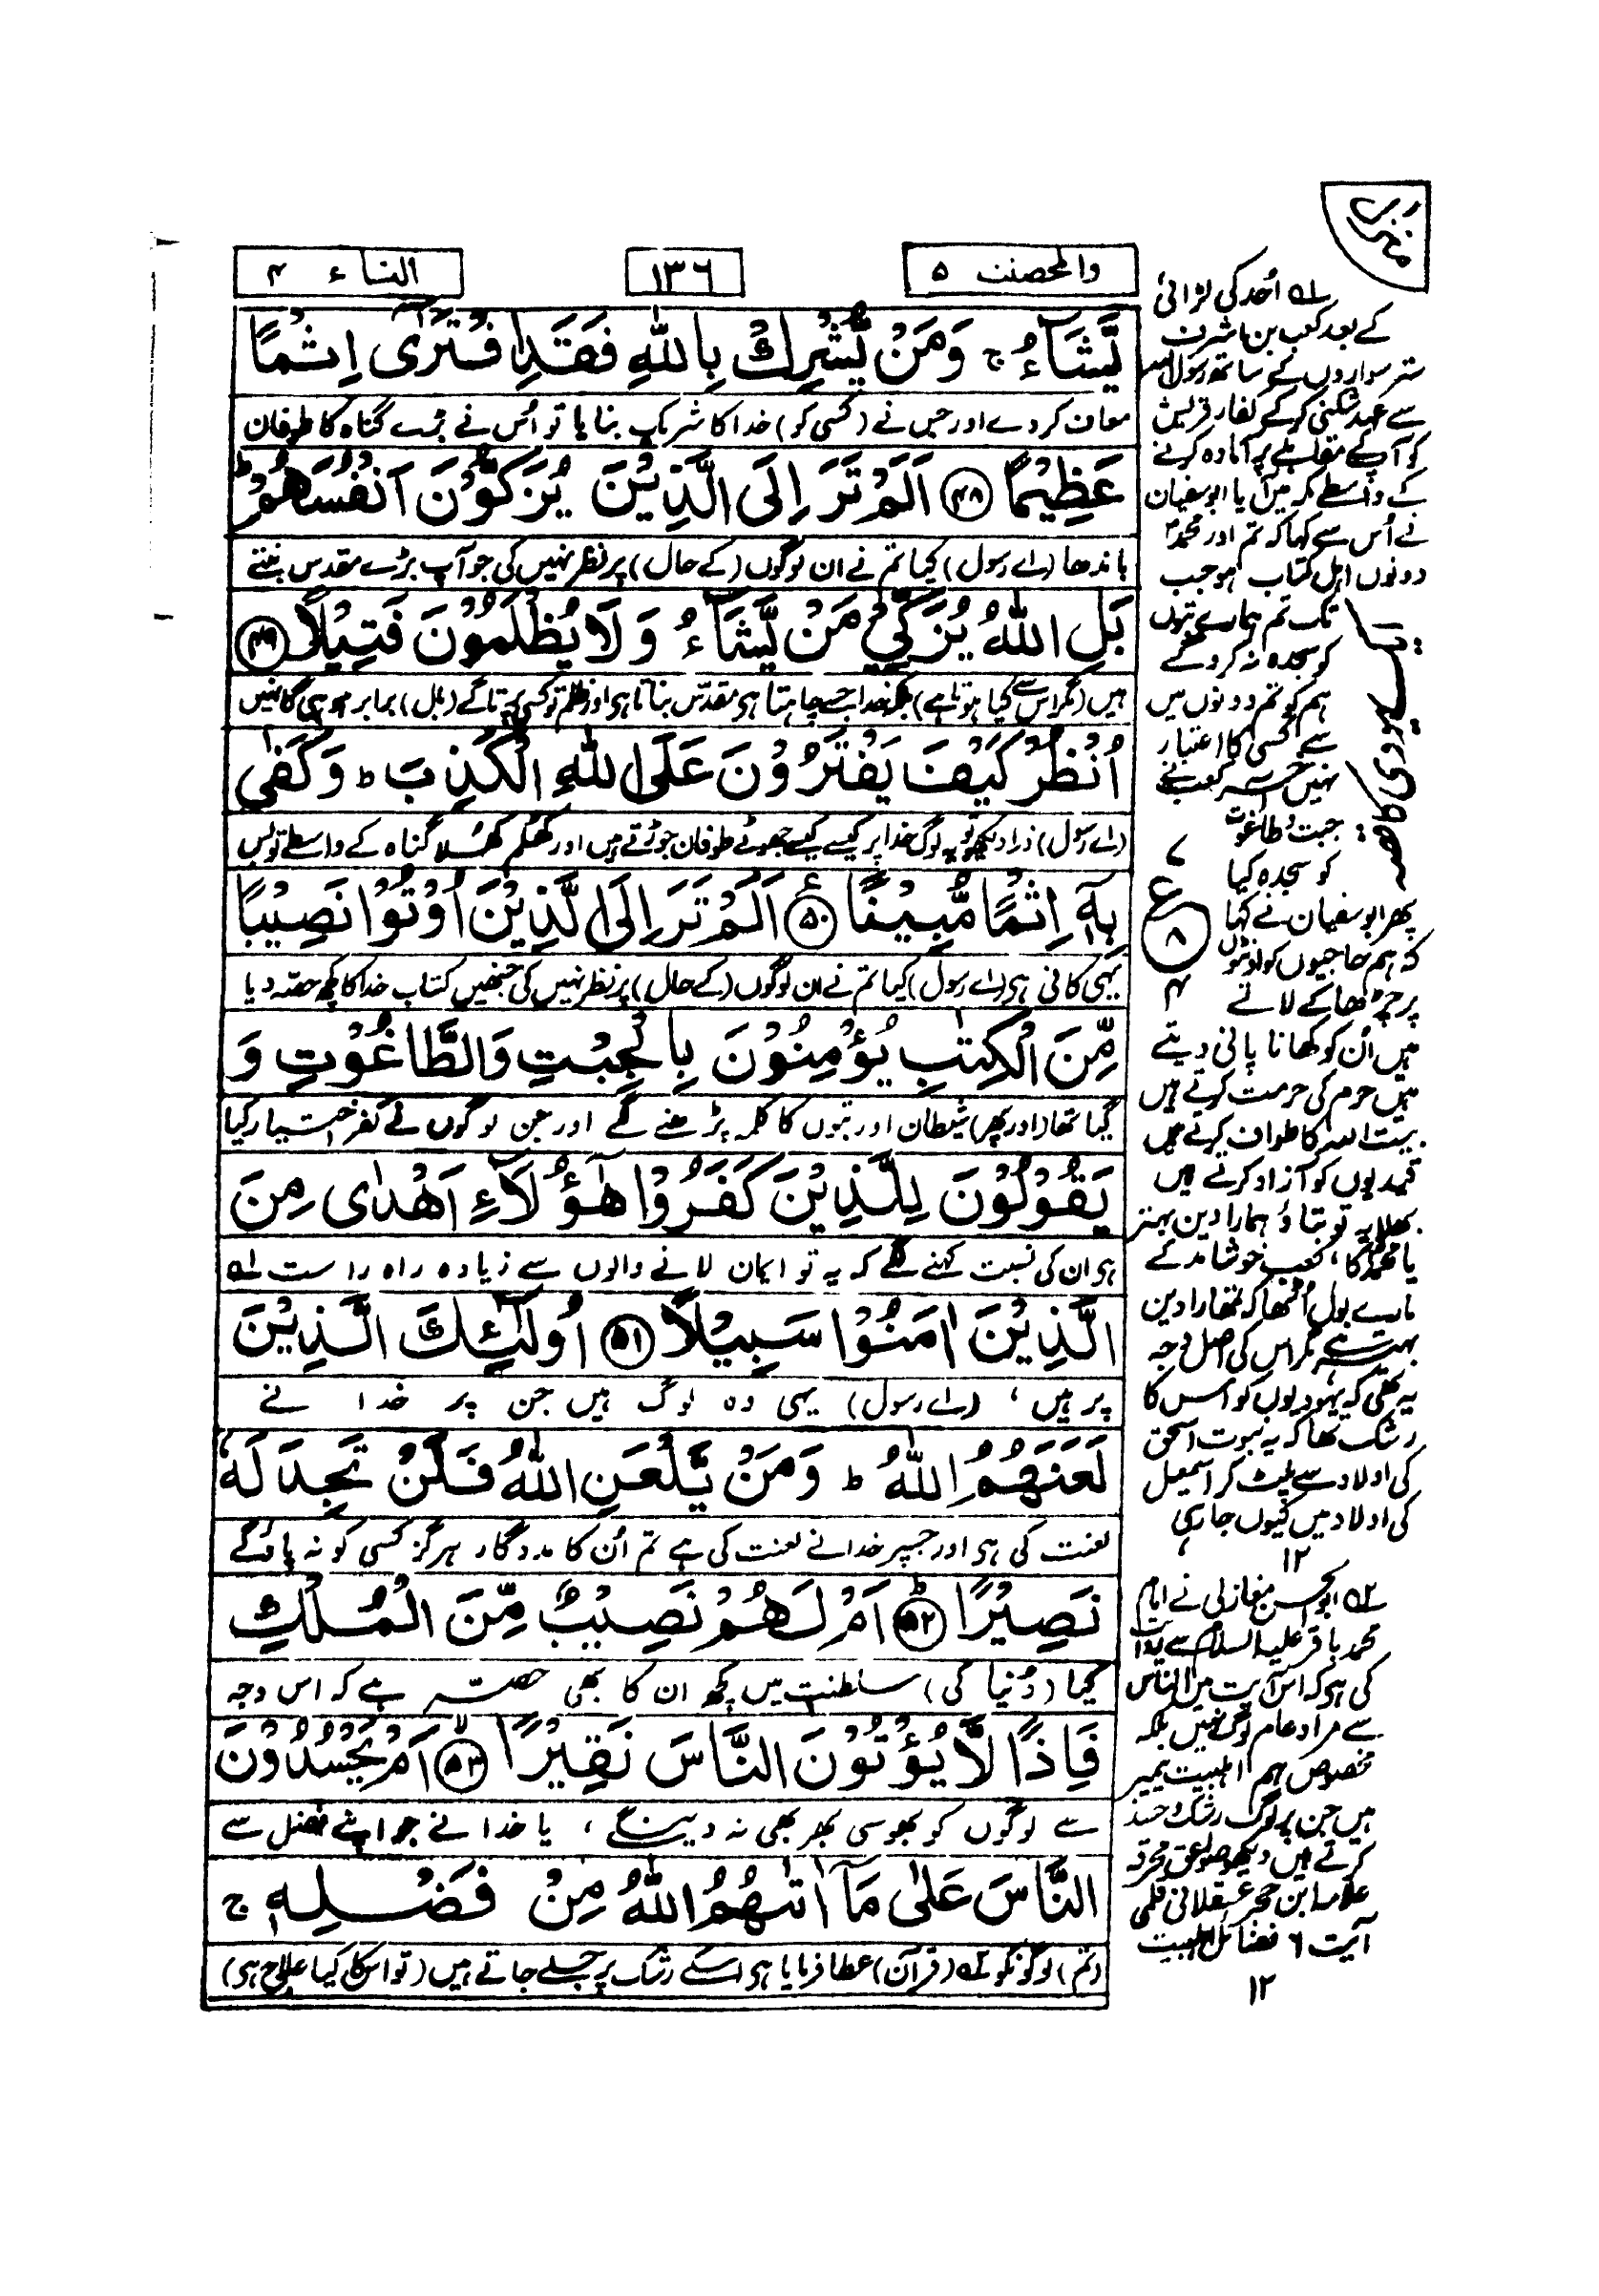 والمحصنت ۵
۱۳۶
النساء ۴
يَّشَآءُ ج وَمَنْ يُّشْرِكْ بِاللّٰهِ فَقَدِ افْتَرٰٓى اِثْمًا
معاف کر دے اور جس نے (کسی کو) خدا کا شریک بنایا تو اُس نے بڑے گناہ کا طوفان
عَظِيْمًا ﴿۴۸﴾ اَلَمْ تَرَ اِلَى الَّذِيْنَ يُزَكُّوْنَ اَنْفُسَهُمْ ط
باندھا (اے رسول) کیا تم نے ان لوگوں (کے حال) پر نظر نہیں کی جو آپ بڑے مقدس بنتے
بَلِ اللّٰهُ يُزَكِّيْ مَنْ يَّشَآءُ وَلَا يُظْلَمُوْنَ فَتِيْلًا ﴿۴۹﴾
ہیں (مگر اس سے کیا ہوتا ہے) بلکہ خدا جسے چاہتا ہی مقدس بناتا ہی اور ظلم تو کسی پر تاگے (بل) برابر ہو ہی گا نہیں
اُنْظُرْ كَيْفَ يَفْتَرُوْنَ عَلَى اللّٰهِ الْكَذِبَ ط وَكَفٰى
(اے رسول) ذرا دیکھو تو یہ لوگ خدا پر کیسے کیسے جھوٹے طوفان جوڑتے ہیں اور کھلم کھلا گناہ کے واسطے تو بس
بِهٖٓ اِثْمًا مُّبِيْنًا ﴿۵۰﴾ ع اَلَمْ تَرَ اِلَى الَّذِيْنَ اُوْتُوْا نَصِيْبًا
یہی کافی ہی (اے رسول) کیا تم نے ان لوگوں (کے حال) پر نظر نہیں کی جنھیں کتاب خدا کا کچھ حصہ دیا
مِّنَ الْكِتٰبِ يُؤْمِنُوْنَ بِالْجِبْتِ وَالطَّاغُوْتِ وَ
گیا تھا (اور پھر) شیطان اور بتوں کا کلمہ پڑھنے لگے اور جن لوگوں نے کفر اختیار کیا
يَقُوْلُوْنَ لِلَّذِيْنَ كَفَرُوْا هٰٓؤُلَآءِ اَهْدٰى مِنَ
ہی ان کی نسبت کہنے لگے کہ یہ تو ایمان لانے والوں سے زیادہ راہ راست ۱؎
الَّذِيْنَ اٰمَنُوْا سَبِيْلًا ﴿۵۱﴾ اُولٰٓئِكَ الَّذِيْنَ
پر ہیں، (اے رسول) یہی وہ لوگ ہیں جن پر خدا نے
لَعَنَهُمُ اللّٰهُ ط وَمَنْ يَّلْعَنِ اللّٰهُ فَلَنْ تَجِدَ لَهٗ
لعنت کی ہی اور جسپر خدا نے لعنت کی ہے تم اُن کا مددگار ہرگز کسی کو نہ پاؤگے
نَصِيْرًا ﴿۵۲﴾ ط اَمْ لَهُمْ نَصِيْبٌ مِّنَ الْمُلْكِ
کیا (دُنیا کی) سلطنت میں کچھ ان کا بھی حصہ ہے کہ اس وجہ
فَاِذًا لَّا يُؤْتُوْنَ النَّاسَ نَقِيْرًا ﴿۵۳﴾ لا اَمْ يَحْسُدُوْنَ
سے لوگوں کو بھوسی بھر بھی نہ دینگے، یا خدا نے جو اپنے فضل سے
النَّاسَ عَلٰى مَآ اٰتٰىهُمُ اللّٰهُ مِنْ فَضْلِهٖ ج
(تم) لوگونکو ۲؎ (قرآن) عطا فرمایا ہی اسکے رشک پر جلے جاتے ہیں (تو اس کا کیا علاج ہی)
منزل
۱؎ اُحد کی لڑائی
کے بعد کعب بن اشرف
ستر سواروں کے ساتھ رسول اللہ
سے عہد شکنی کر کے کفار قریش
کو آپ کے مقابلے پر آمادہ کرنے
کے واسطے مکہ میں آیا ابوسفیان
نے اُس سے کہا کہ تم اور محمدؐ
دونوں اہل کتاب ہو جب
تک تم ہمارے بتوں
کو سجدہ نہ کروگے
ہم کو تم دونوں میں
سے کسی کا اعتبار
نہیں کعب نے
جبت و طاغوت
کو سجدہ کیا
یہودی کا حسد
ع
۸
۴
پھر ابوسفیان نے کہا
کہ ہم حاجیوں کو اونٹوں
پر چڑھا کے لاتے
ہیں اُن کو کھانا پانی دیتے
ہیں حرم کی حرمت کرتے ہیں
بیت اللہ کا طواف کرتے ہیں
قیدیوں کو آزاد کرتے ہیں
بھلا یہ تو بتاؤ ہمارا دین بہتر
یا محمدؐ کا، کعب خوشامد کے
مارے بول اُٹھا کہ تمھارا دین
بہتر ہے مگر اس کی اصل وجہ
یہ تھی کہ یہودیوں کو اس کا
رشک تھا کہ یہ نبوت اسحٰق
کی اولاد سے پلٹ کر اسمٰعیل
کی اولاد میں کیوں جا رہی
۱۲
۲؎ ابوالحسن مغازلی نے امام
محمد باقر علیہ السلام سے روایت
کی ہو کہ اس آیت میں الناس
سے مراد عام لوگ نہیں بلکہ
مخصوص ہم اہلبیت پیمبر
ہیں جن پر لوگ رشک و حسد
کرتے ہیں دیکھو صواعق محرقہ
علامہ ابن حجر عسقلانی قلمی
آیت ۶ فضائل اہلبیت
۱۲